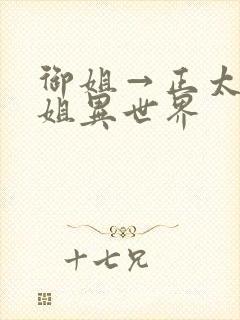 御姐→正太
姐異世界
十七兄